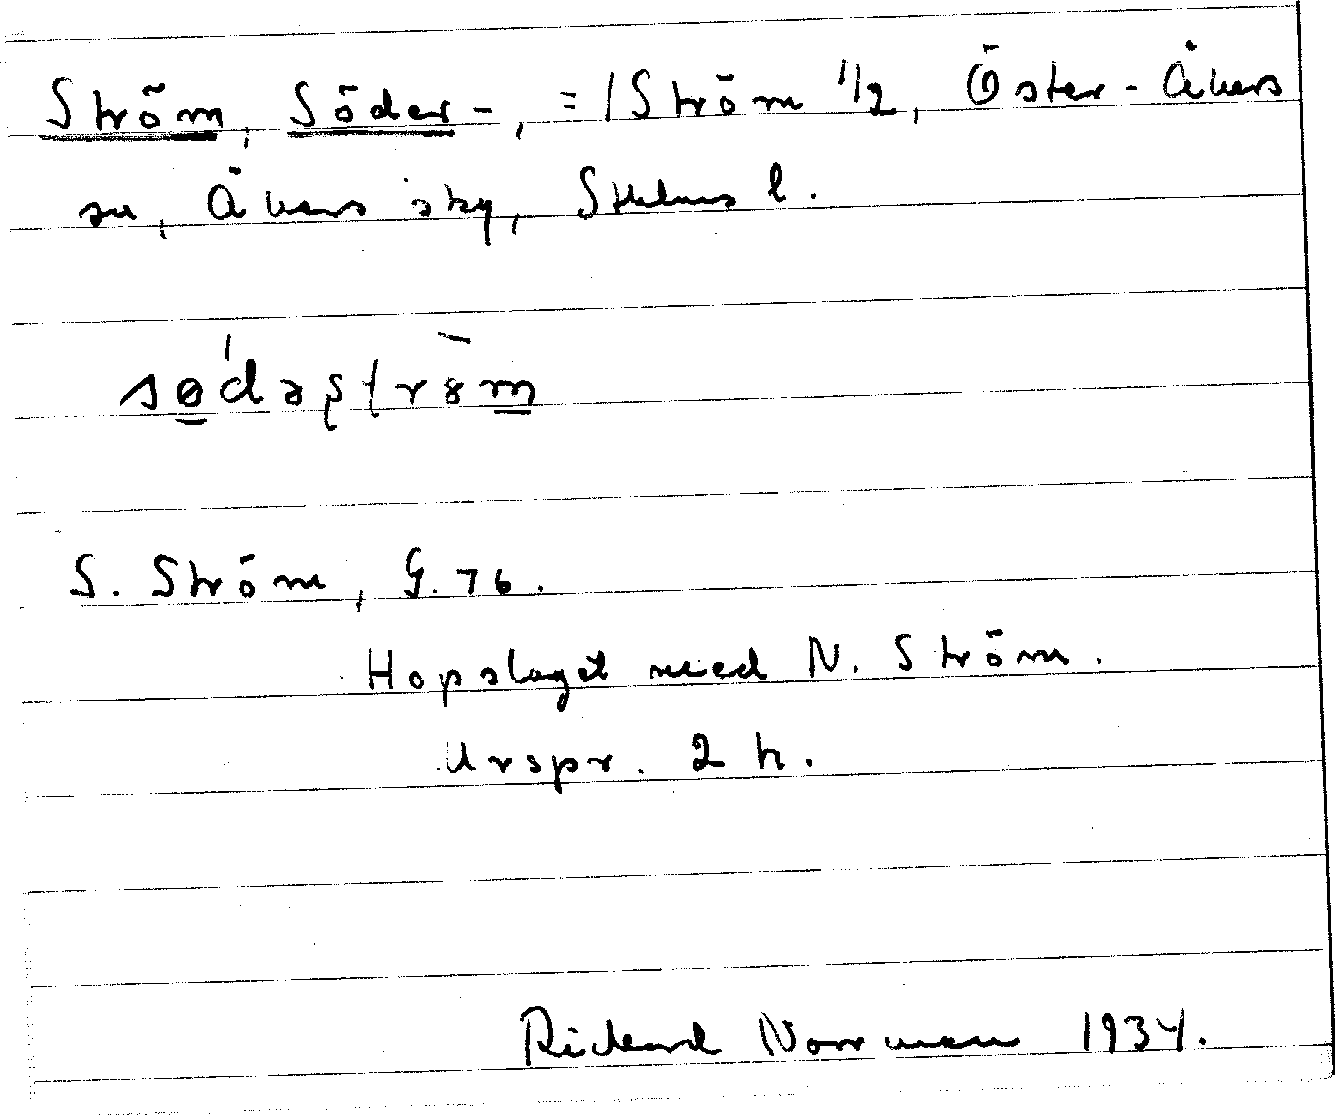 Ström, Söder-, = /Ström 1/2, Öster-Åkers
sn, Åkers sky, Sthlms l.
sødəʂtrȣm
S. Ström, G. 76.
Hopslaget med N. Ström.
Urspr. 2 h.
Rickard Norrman 1934.